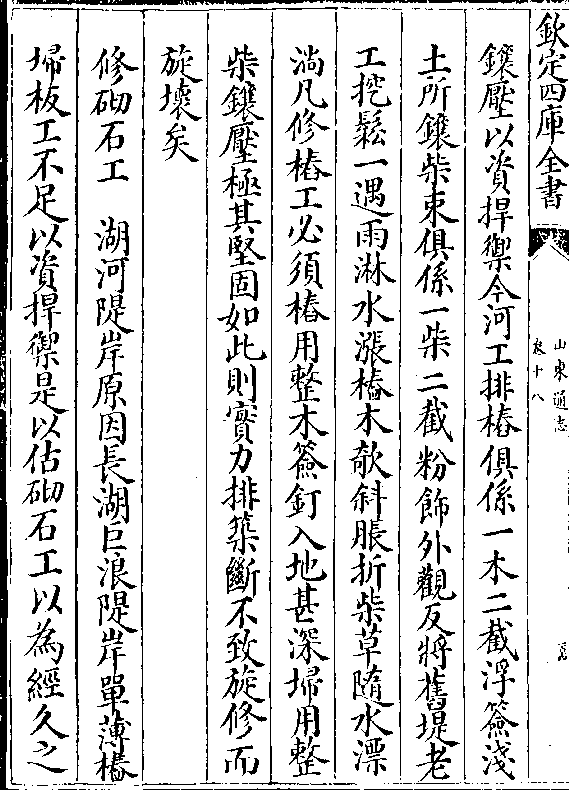 欽定四庫全書
山東通志
卷十八
鑲壓以資捍禦今河工排樁俱係一木二截浮簽淺
土所鑲柴束俱係一柴二截粉飾外觀反將舊堤老
工挖鬆一遇雨淋水漲樁木欹斜脹折柴草隨水漂
淌凡修樁工必須樁用整木簽釘入地甚深埽用整
柴鑲壓極其堅固如此則實力排築斷不致旋修而
旋壞矣
修砌石工　湖河隄岸原因長湖巨浪隄岸單薄樁
埽板工不足以資捍禦是以估砌石工以為經久之